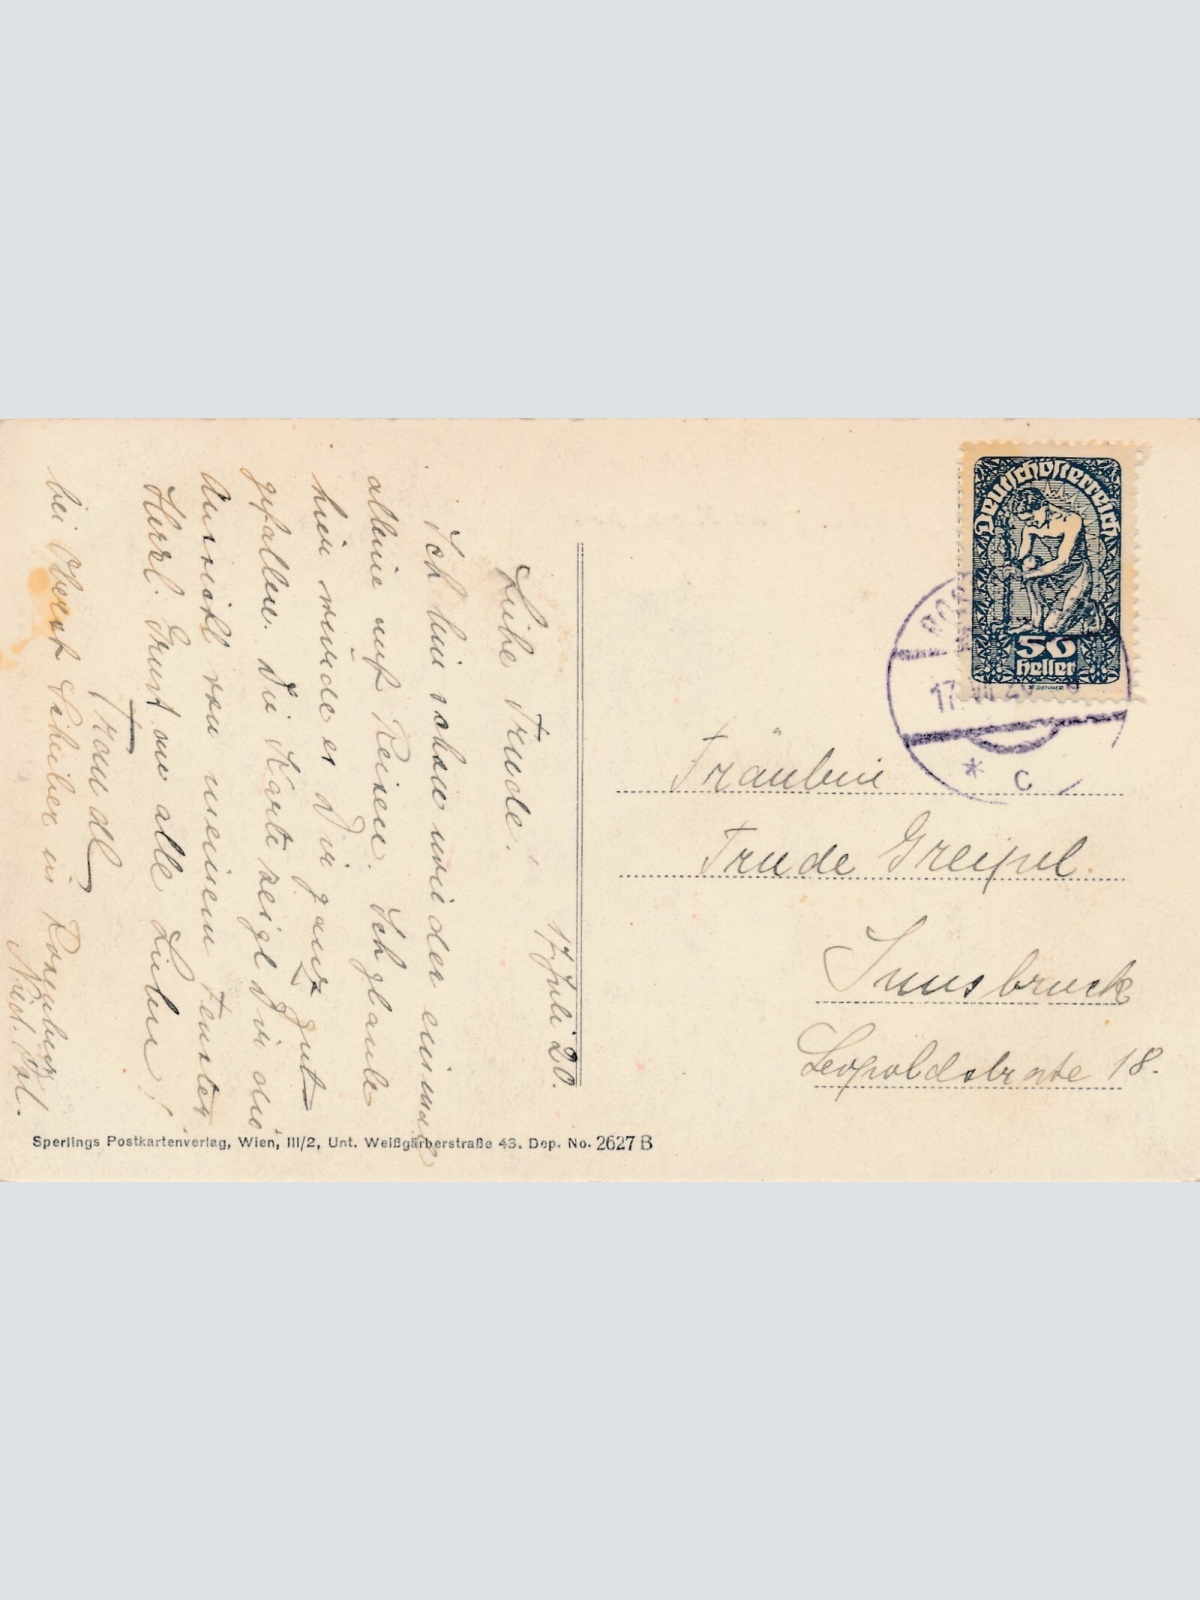 17. Juli 20.
Liebe Trude!
Ich bin schon wieder einmal
alleine auf Reisen. Ich glaube
hier würde es Dir ganz gut
gefallen. Die Karte zeigt Dir die
Ansicht von meinem Fenster.
Herzl. Gruss an alle Lieben!
Traudl
bei Oberst Schiber in Rosenburg
Nied. Öst.
Deutschösterreich
50
Heller
17. VII 20
* C
Fräulein
Trude Greipel.
Innsbruck
Leopoldstraße 18.
Sperlings Postkartenverlag, Wien, III/2, Unt. Weißgärberstraße 43. Dep. No. 2627 B